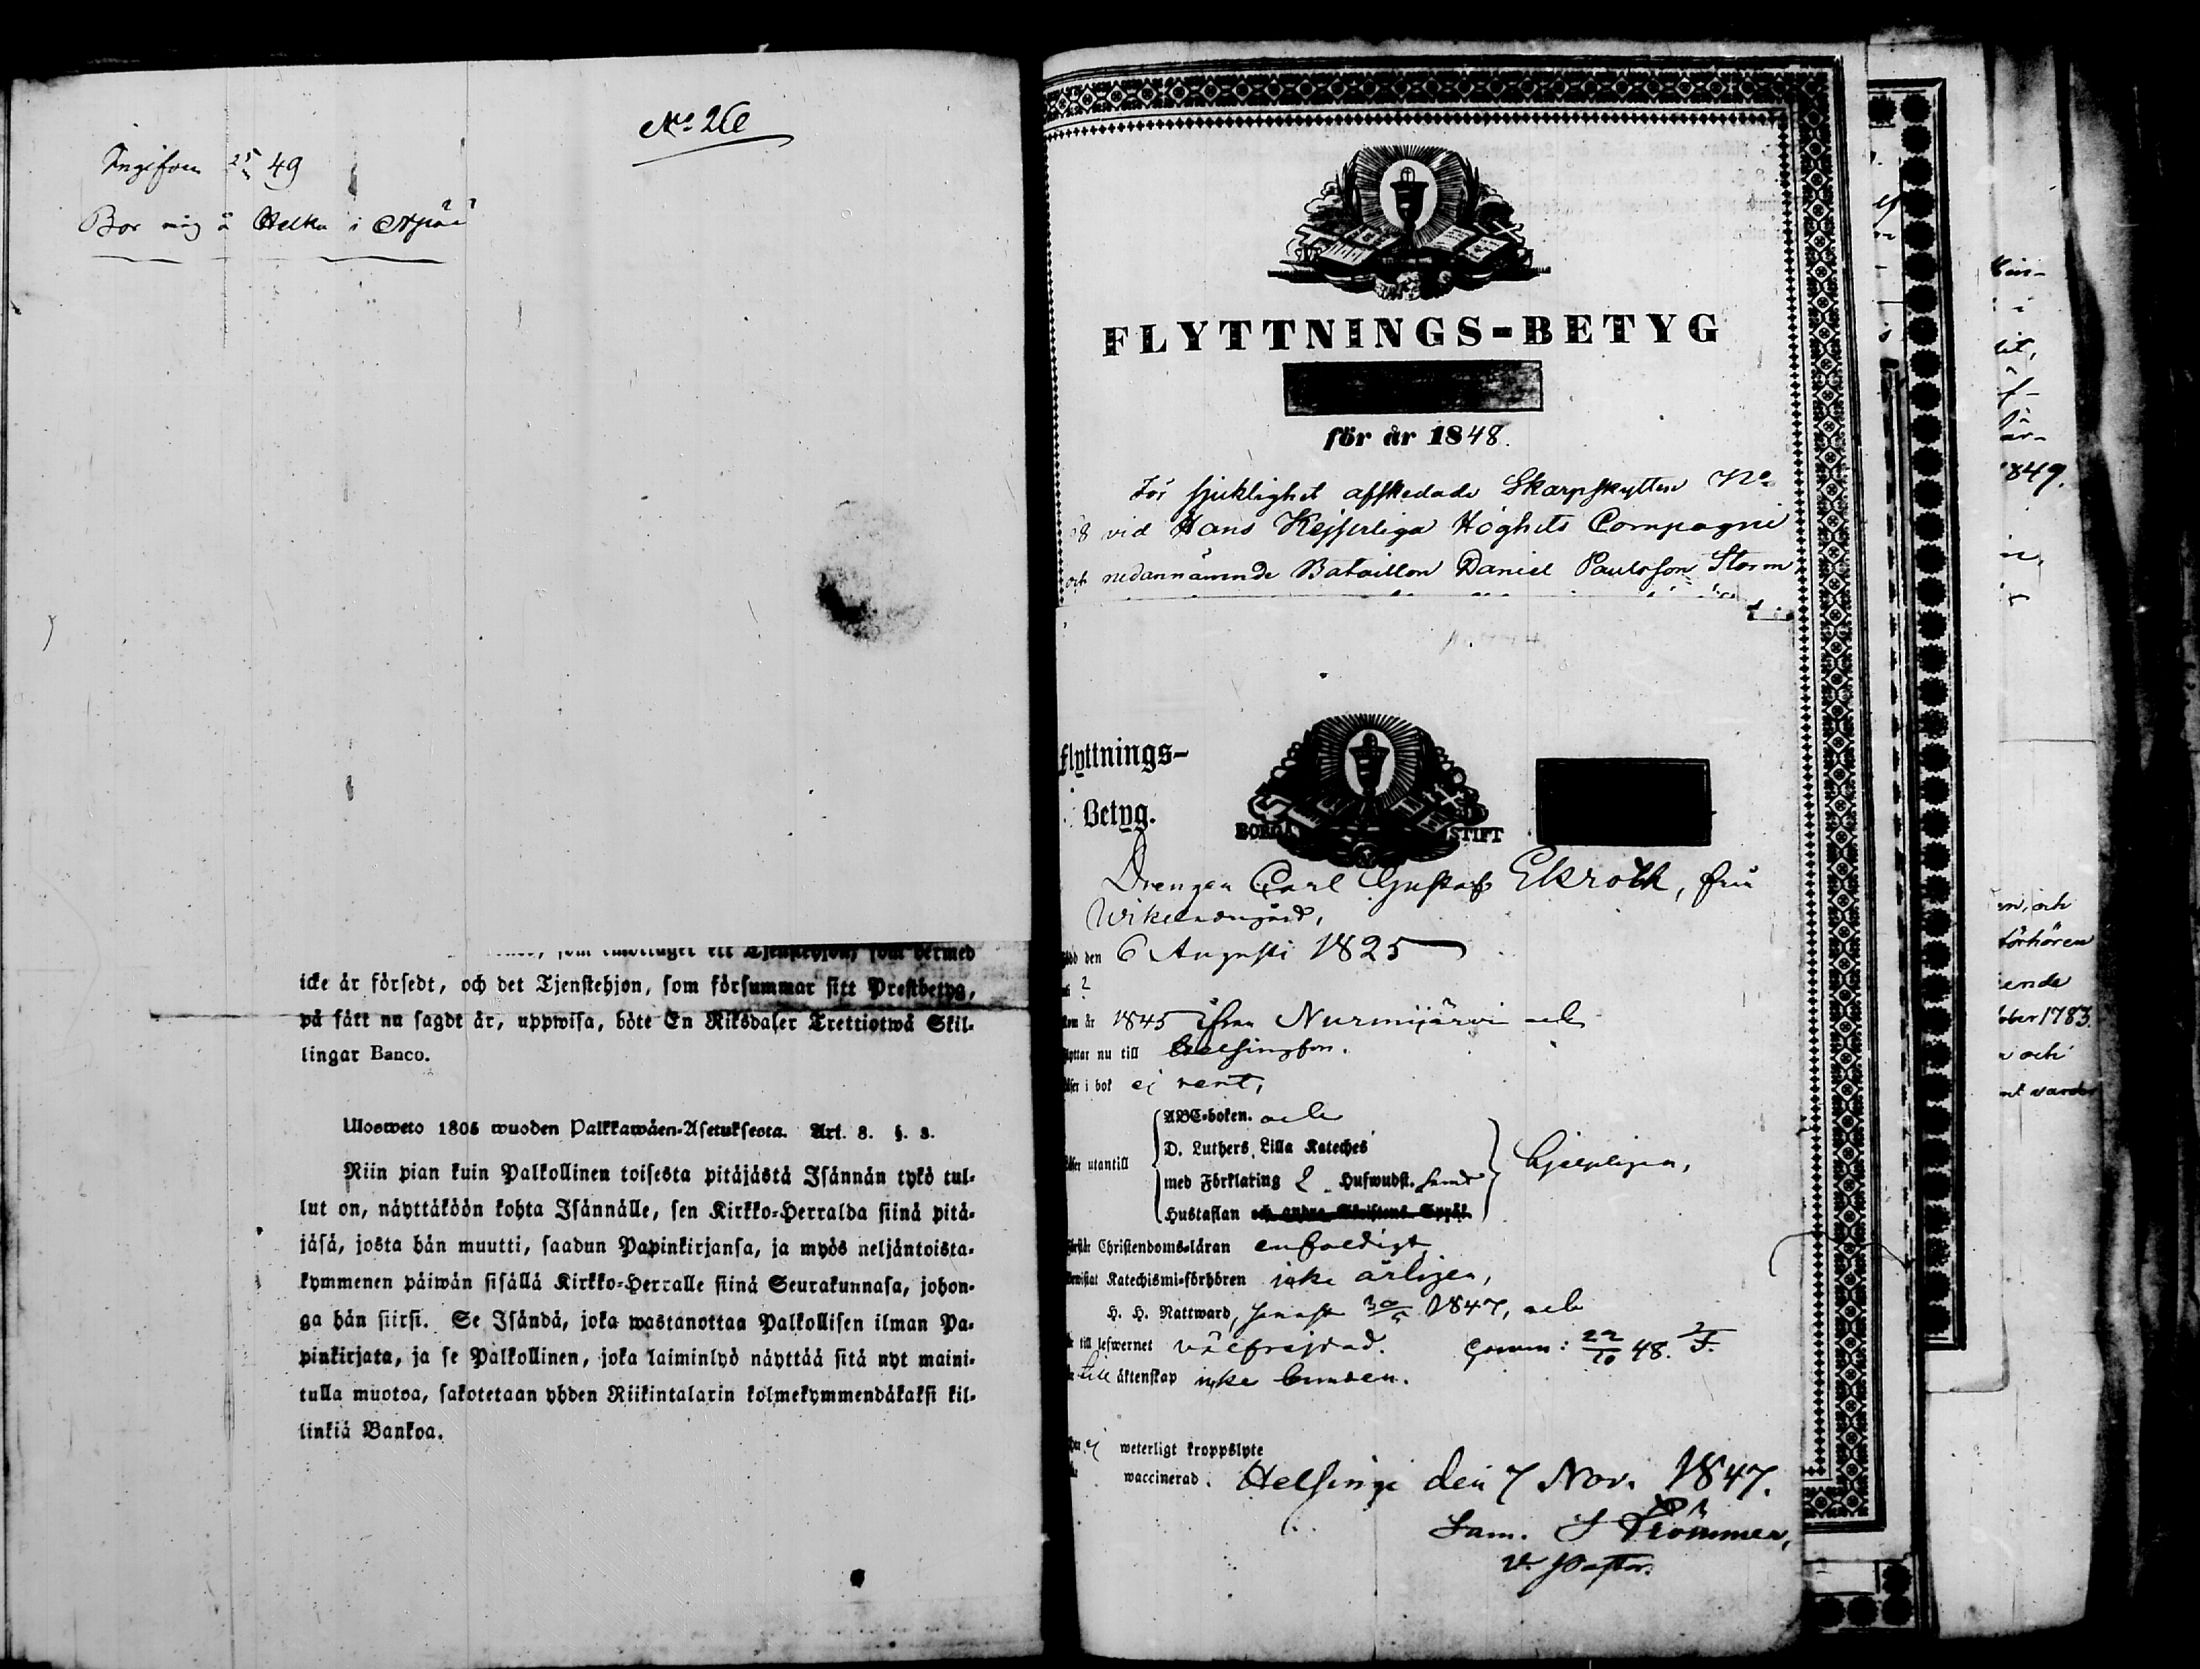 No 26
49
Bor i
icke är försedt, och det Tjenstehjon, som försummar sitt Prestbetyg,
på sätt nu sagdt är, uppwisa, böte En Riksdaler Trettiotwå Skil-
lingar Banco.
Ulosweto 1805 wuoden Palkkawäen-Asetuksesta. Art. 8. §. 3.
Niin pian kuin Palkollinen toisesta pitäjästä Isännän tykö tul-
lut on, näyttäköön kohta Isännälle, sen Kirkko-Herralda siinä pitä-
jäsä, josta hän muutti, saadun Papinkirjansa, ja myös neljäntoista-
kymmenen päiwän sisällä Kirkko-Herralle siinä Seurakunnasa, johon-
ga hän siirsi. Se Isändä, joka wastanottaa Palkollisen ilman Pa-
pinkirjata, ja se Palkollinen, joka laiminlyö näyttää sitä nyt maini-
tulla muotoa, sakotetaan yhden Riikintalarin kolmekymmendäkaksi kil-
linkiä Bankoa.
FLYTTNINGS-BETYG
för år 1848.
För sjuklighet afskedade Skarpskytten No
8 vid Hans Kejserliga Höghets Compagnie
och nedannämnde Bataillon Daniel Paulsson Storm
Flyttnings-
Betyg.
BORGÅ STIFT
Drengen Carl Gustaf Ekroth, från
den 6 Augusti 1825
år 1845 ifrån Nurmijärvi och
nu till Helsingfors.
i bok ej rent,
ABC-boken. och
D. Luthers Lilla Kateches
utantill
med Förklaring 2 Hufwudst. samt
Hustaflan och andra Skriftens Språk
hjelpligen,
Christendoms-läran enfaldigt
Katechismi-förhören icke årligen,
H. H. Nattward, senast 30/5 1847, och
till lefwernet välfrejdad. Comm: 22/10 48.
till äktenskap icke bunden.
ej weterligt kroppslyte
waccinerad. Helsinge den 7 Nov. 1847.
Sam. Strömmer,
V. Pastor.
1849.
och
förhören
1783.
och